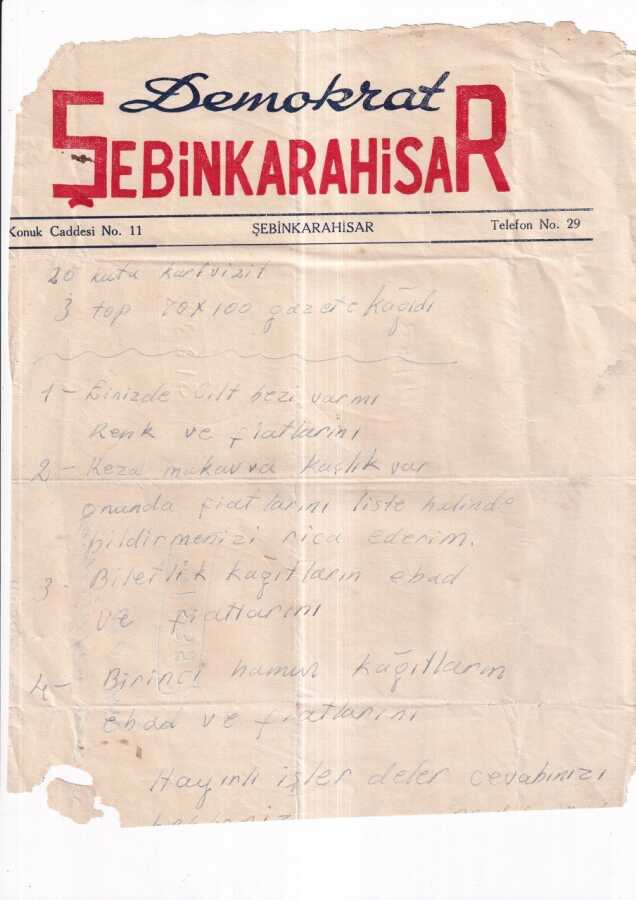 Demokrat
ŞEBİNKARAHİSAR
Konuk Caddesi No. 11 ŞEBİNKARAHİSAR Telefon No. 29
20 kutu kartvizit
3 top 70x100 gazete kâğıdı
1- Elinizde cilt bezi varmı
Renk ve fiatlarını
2- Keza mukavva kaçlık var
onunda fiatlarını liste halinde
bildirmenizi rica ederim.
3- Biletlik kâğıtların ebad
ve fiatlarını
4- Birinci hamur kâğıtların
ebad ve fiatlarını
Hayırlı işler deler cevabınızı